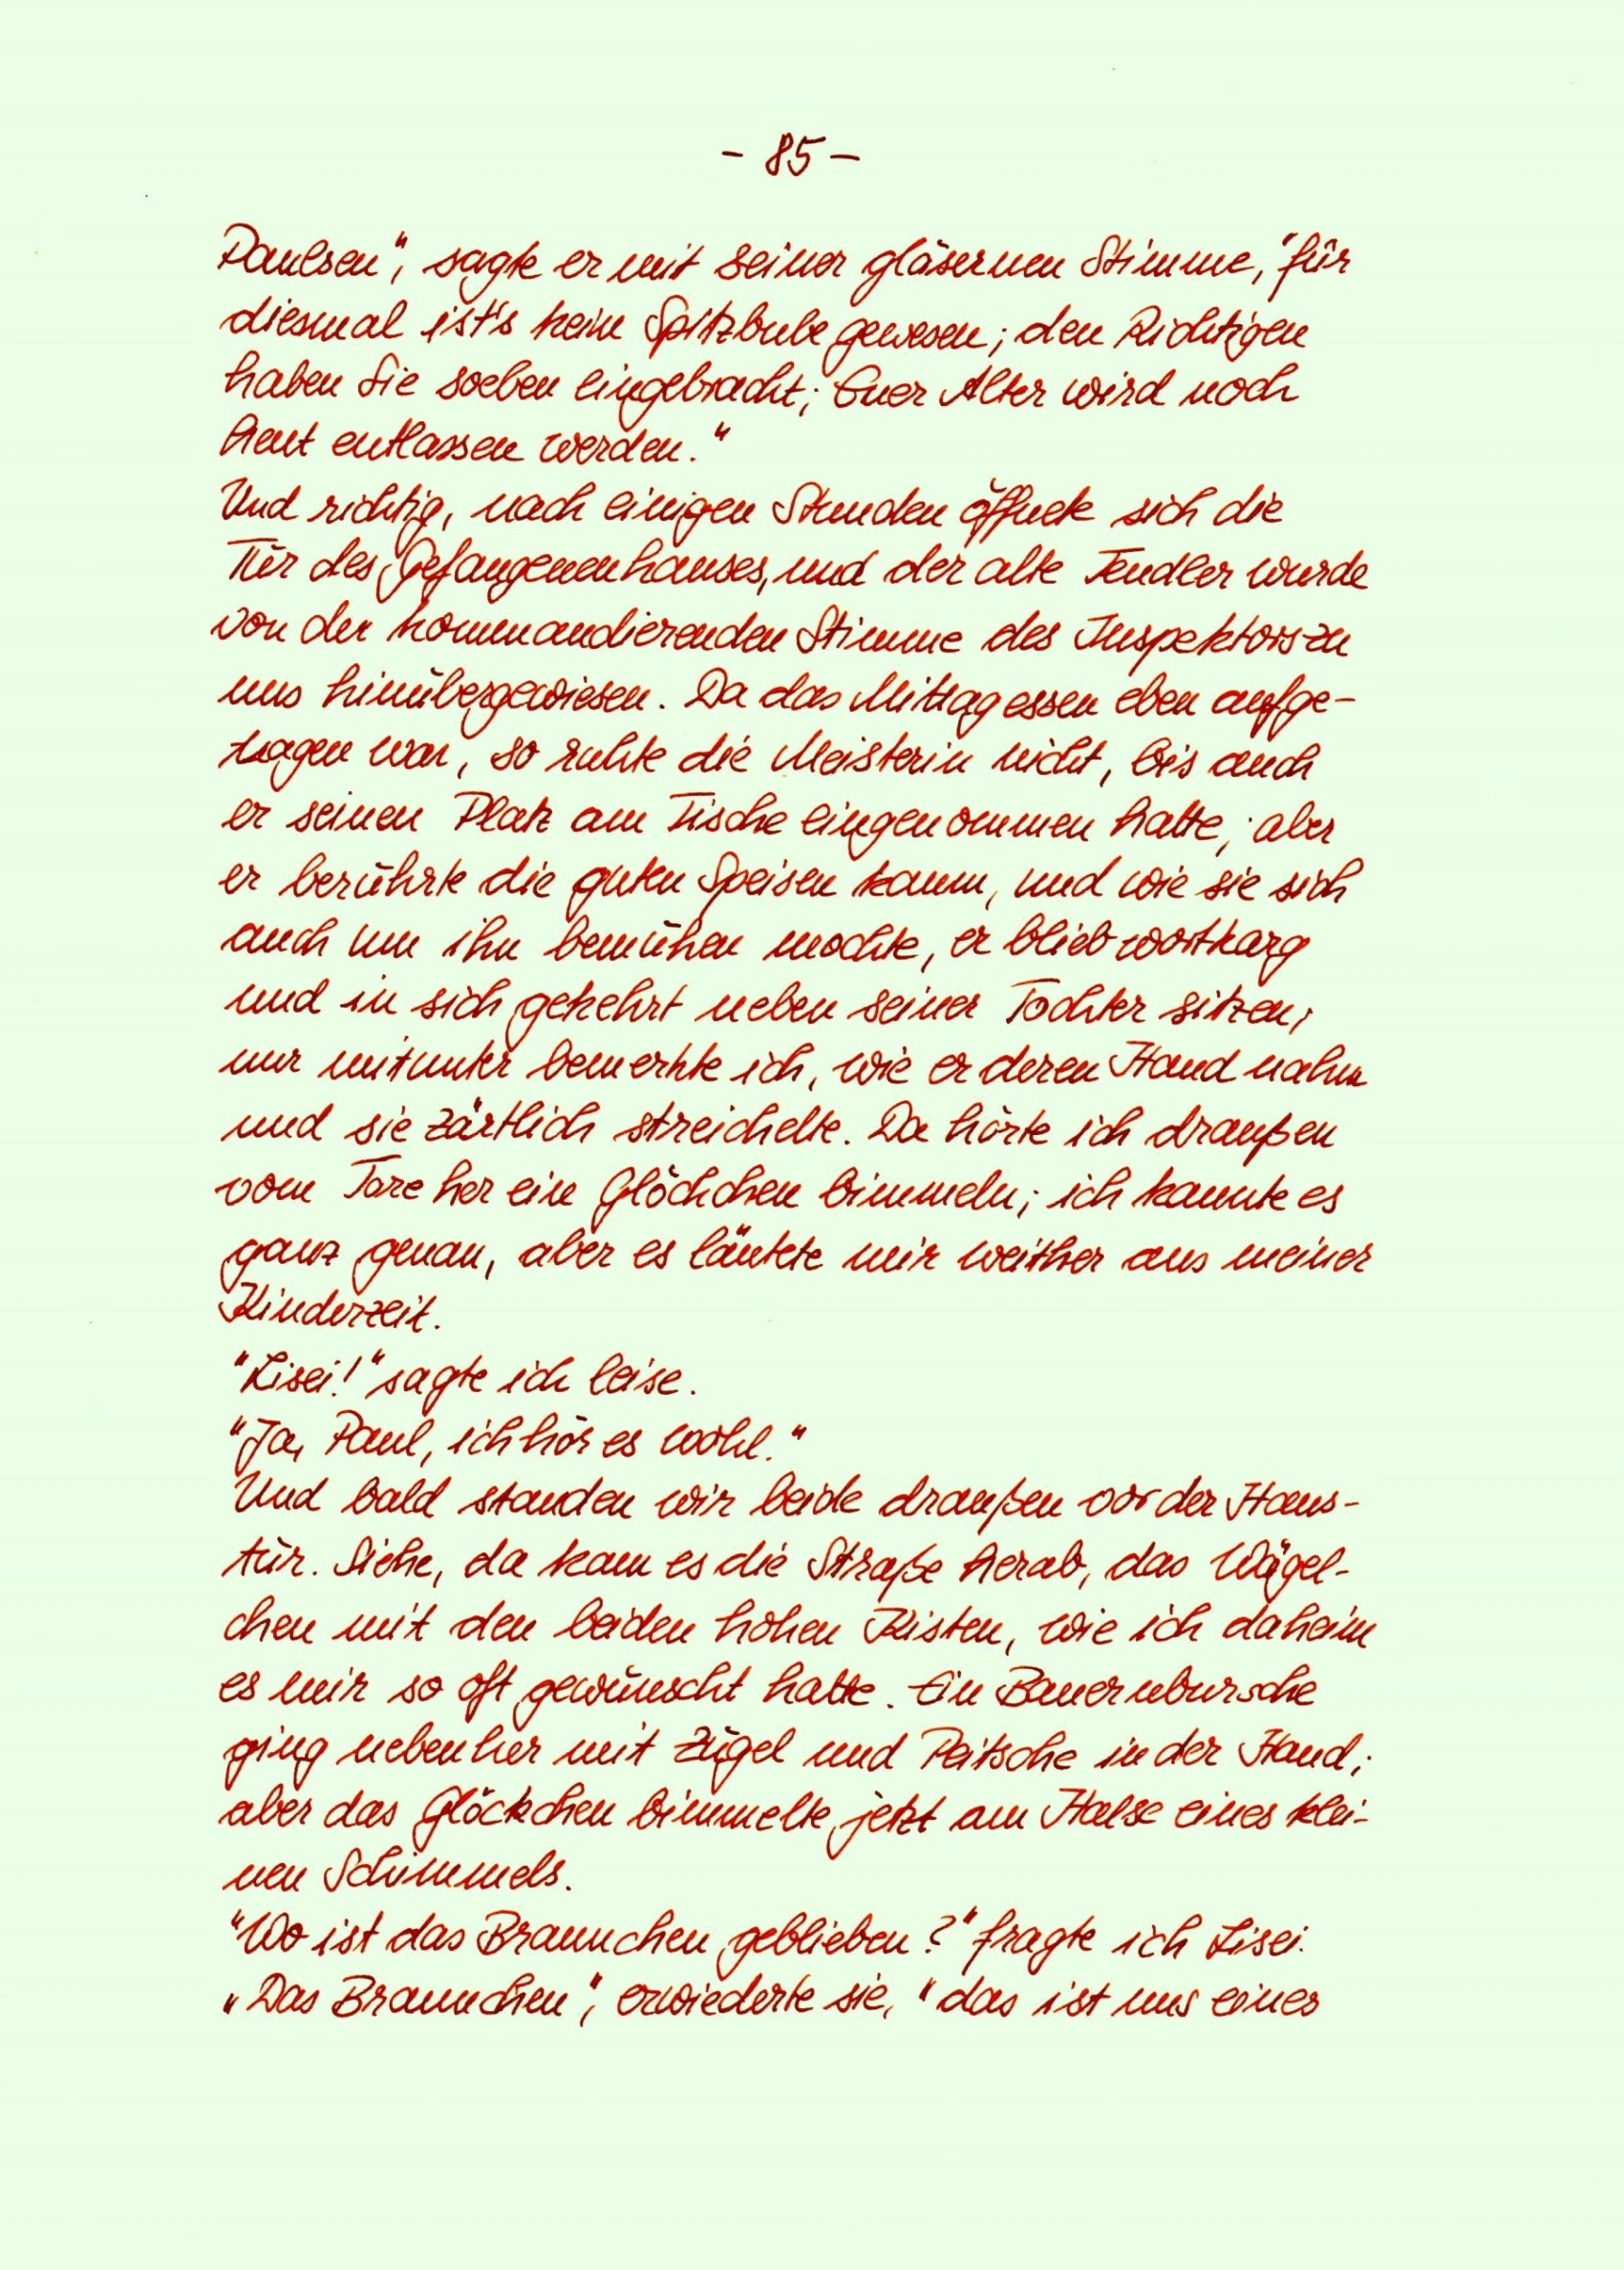 - 85 -
Paulsen", sagte er mit seiner gläsernen Stimme, "für
diesmal ist's kein Spitzbube gewesen; den Richtigen
haben Sie soeben eingebracht; Euer Alter wird noch
heut entlassen werden."
Und richtig, nach einigen Stunden öffnete sich die
Tür des Gefangenenhauses, und der alte Tendler wurde
von der kommandierenden Stimme des Inspektors zu
uns hinübergewiesen. Da das Mittagessen eben aufge-
tragen war, so ruhte die Meisterin nicht, bis auch
er seinen Platz am Tische eingenommen hatte; aber
er berührte die guten Speisen kaum, und wie sie sich
auch um ihn bemühen mochte, er blieb wortkarg
und in sich gekehrt neben seiner Tochter sitzen;
nur mitunter bemerkte ich, wie er deren Hand nahm
und sie zärtlich streichelte. Da hörte ich draußen
vom Tore her ein Glöckchen bimmeln; ich kannte es
ganz genau, aber es läutete mir weither aus meiner
Kinderzeit.
"Lisei!" sagte ich leise.
"Ja, Paul, ich hör es wohl."
Und bald standen wir beide draußen vor der Haus-
tür. Siehe, da kam es die Straße herab, das Wägel-
chen mit den beiden hohen Kisten, wie ich daheim
es mir so oft gewünscht hatte. Ein Bauernbursche
ging nebenher mit Zügel und Peitsche in der Hand;
aber das Glöckchen bimmelte jetzt am Halse eines klei-
nen Schimmels.
"Wo ist das Braunchen geblieben?" fragte ich Lisei.
"Das Braunchen", erwiederte sie, "das ist uns eines